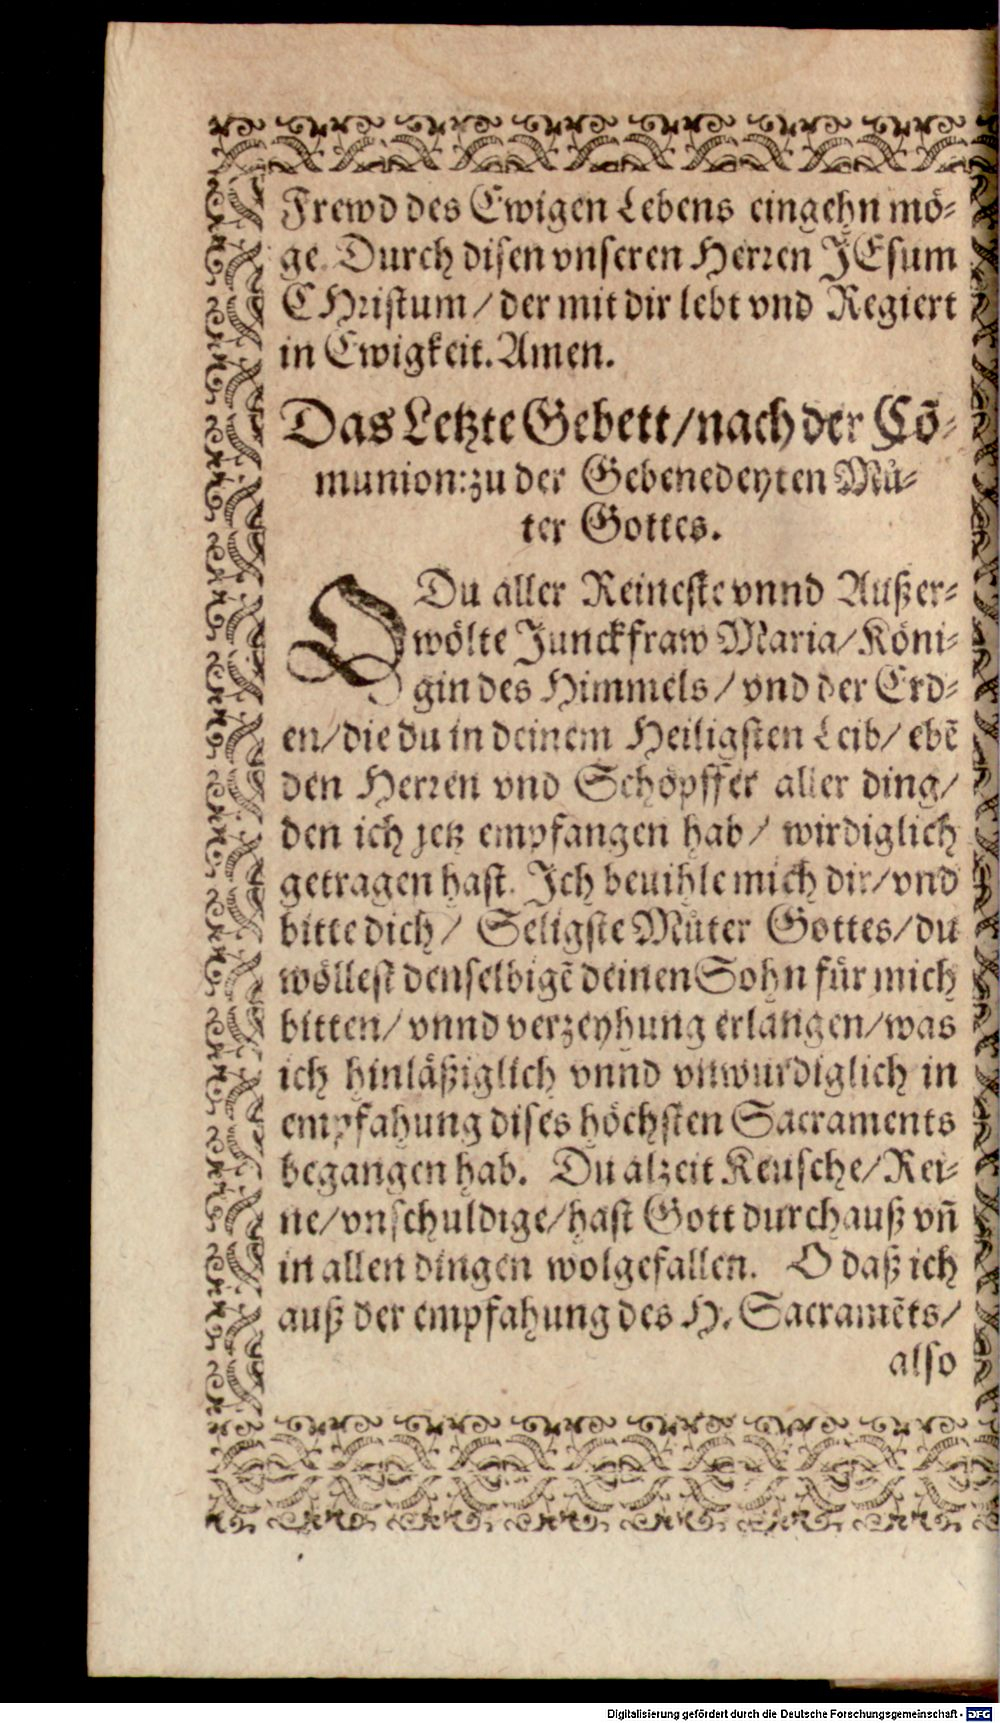 Frewd des Ewigen Lebens eingehn mö⸗
ge. Durch disen vnseren Herren JEsum
CHristum / der mit dir lebt vnd Regiert
in Ewigkeit. Amen.
Das Letzte Gebett / nach der Cõ⸗
munion: zu der Gebenedeyten Mů⸗
ter Gottes.
O Du aller Reineste vnnd Außer⸗
wölte Junckfraw Maria / Köni⸗
gin des Himmels / vnd der Erd⸗
en / die du in deinem Heiligsten Leib / ebẽ
den Herren vnd Schöpffer aller ding /
den ich jetz empfangen hab / wirdiglich
getragen hast. Ich beuihle mich dir / vnd
bitte dich / Seligste Můter Gottes / du
wöllest denselbigẽ deinen Sohn für mich
bitten / vnnd verzeyhung erlangen / was
ich hinläßiglich vnnd vnwurdiglich in
empfahung dises höchsten Sacraments
begangen hab. Du alzeit Keusche / Rei⸗
ne / vnschuldige / hast Gott durchauß vñ
in allen dingen wolgefallen. O daß ich
auß der empfahung des H. Sacramẽts /
also
Digitalisierung gefördert durch die Deutsche Forschungsgemeinschaft - DFG